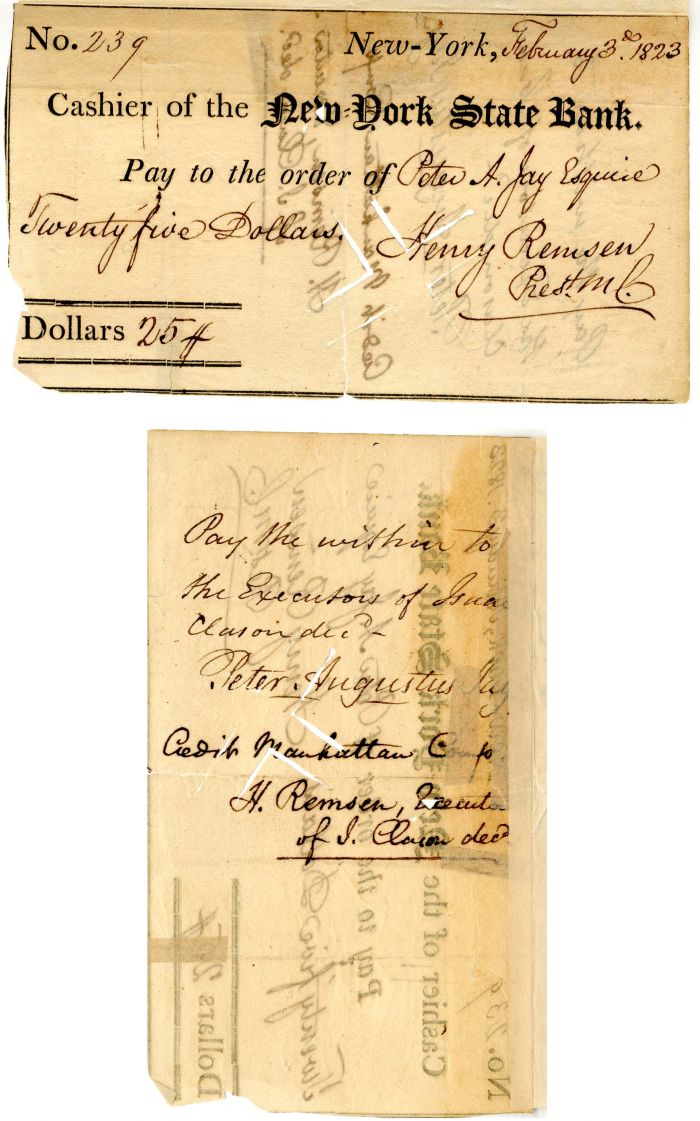 No. 239 New-York, February 3d. 1823
Cashier of the New-York State Bank.
Pay to the order of Peter A. Jay Esquire
Twenty five Dollars. Henry Remsen
Prest. M C
Dollars 25
Pay the within to
the Executors of Isaa
Clason decd
Peter Augustus Jay
Credit Manhattan Comp
H. Remsen, Executo
of I. Clason decd